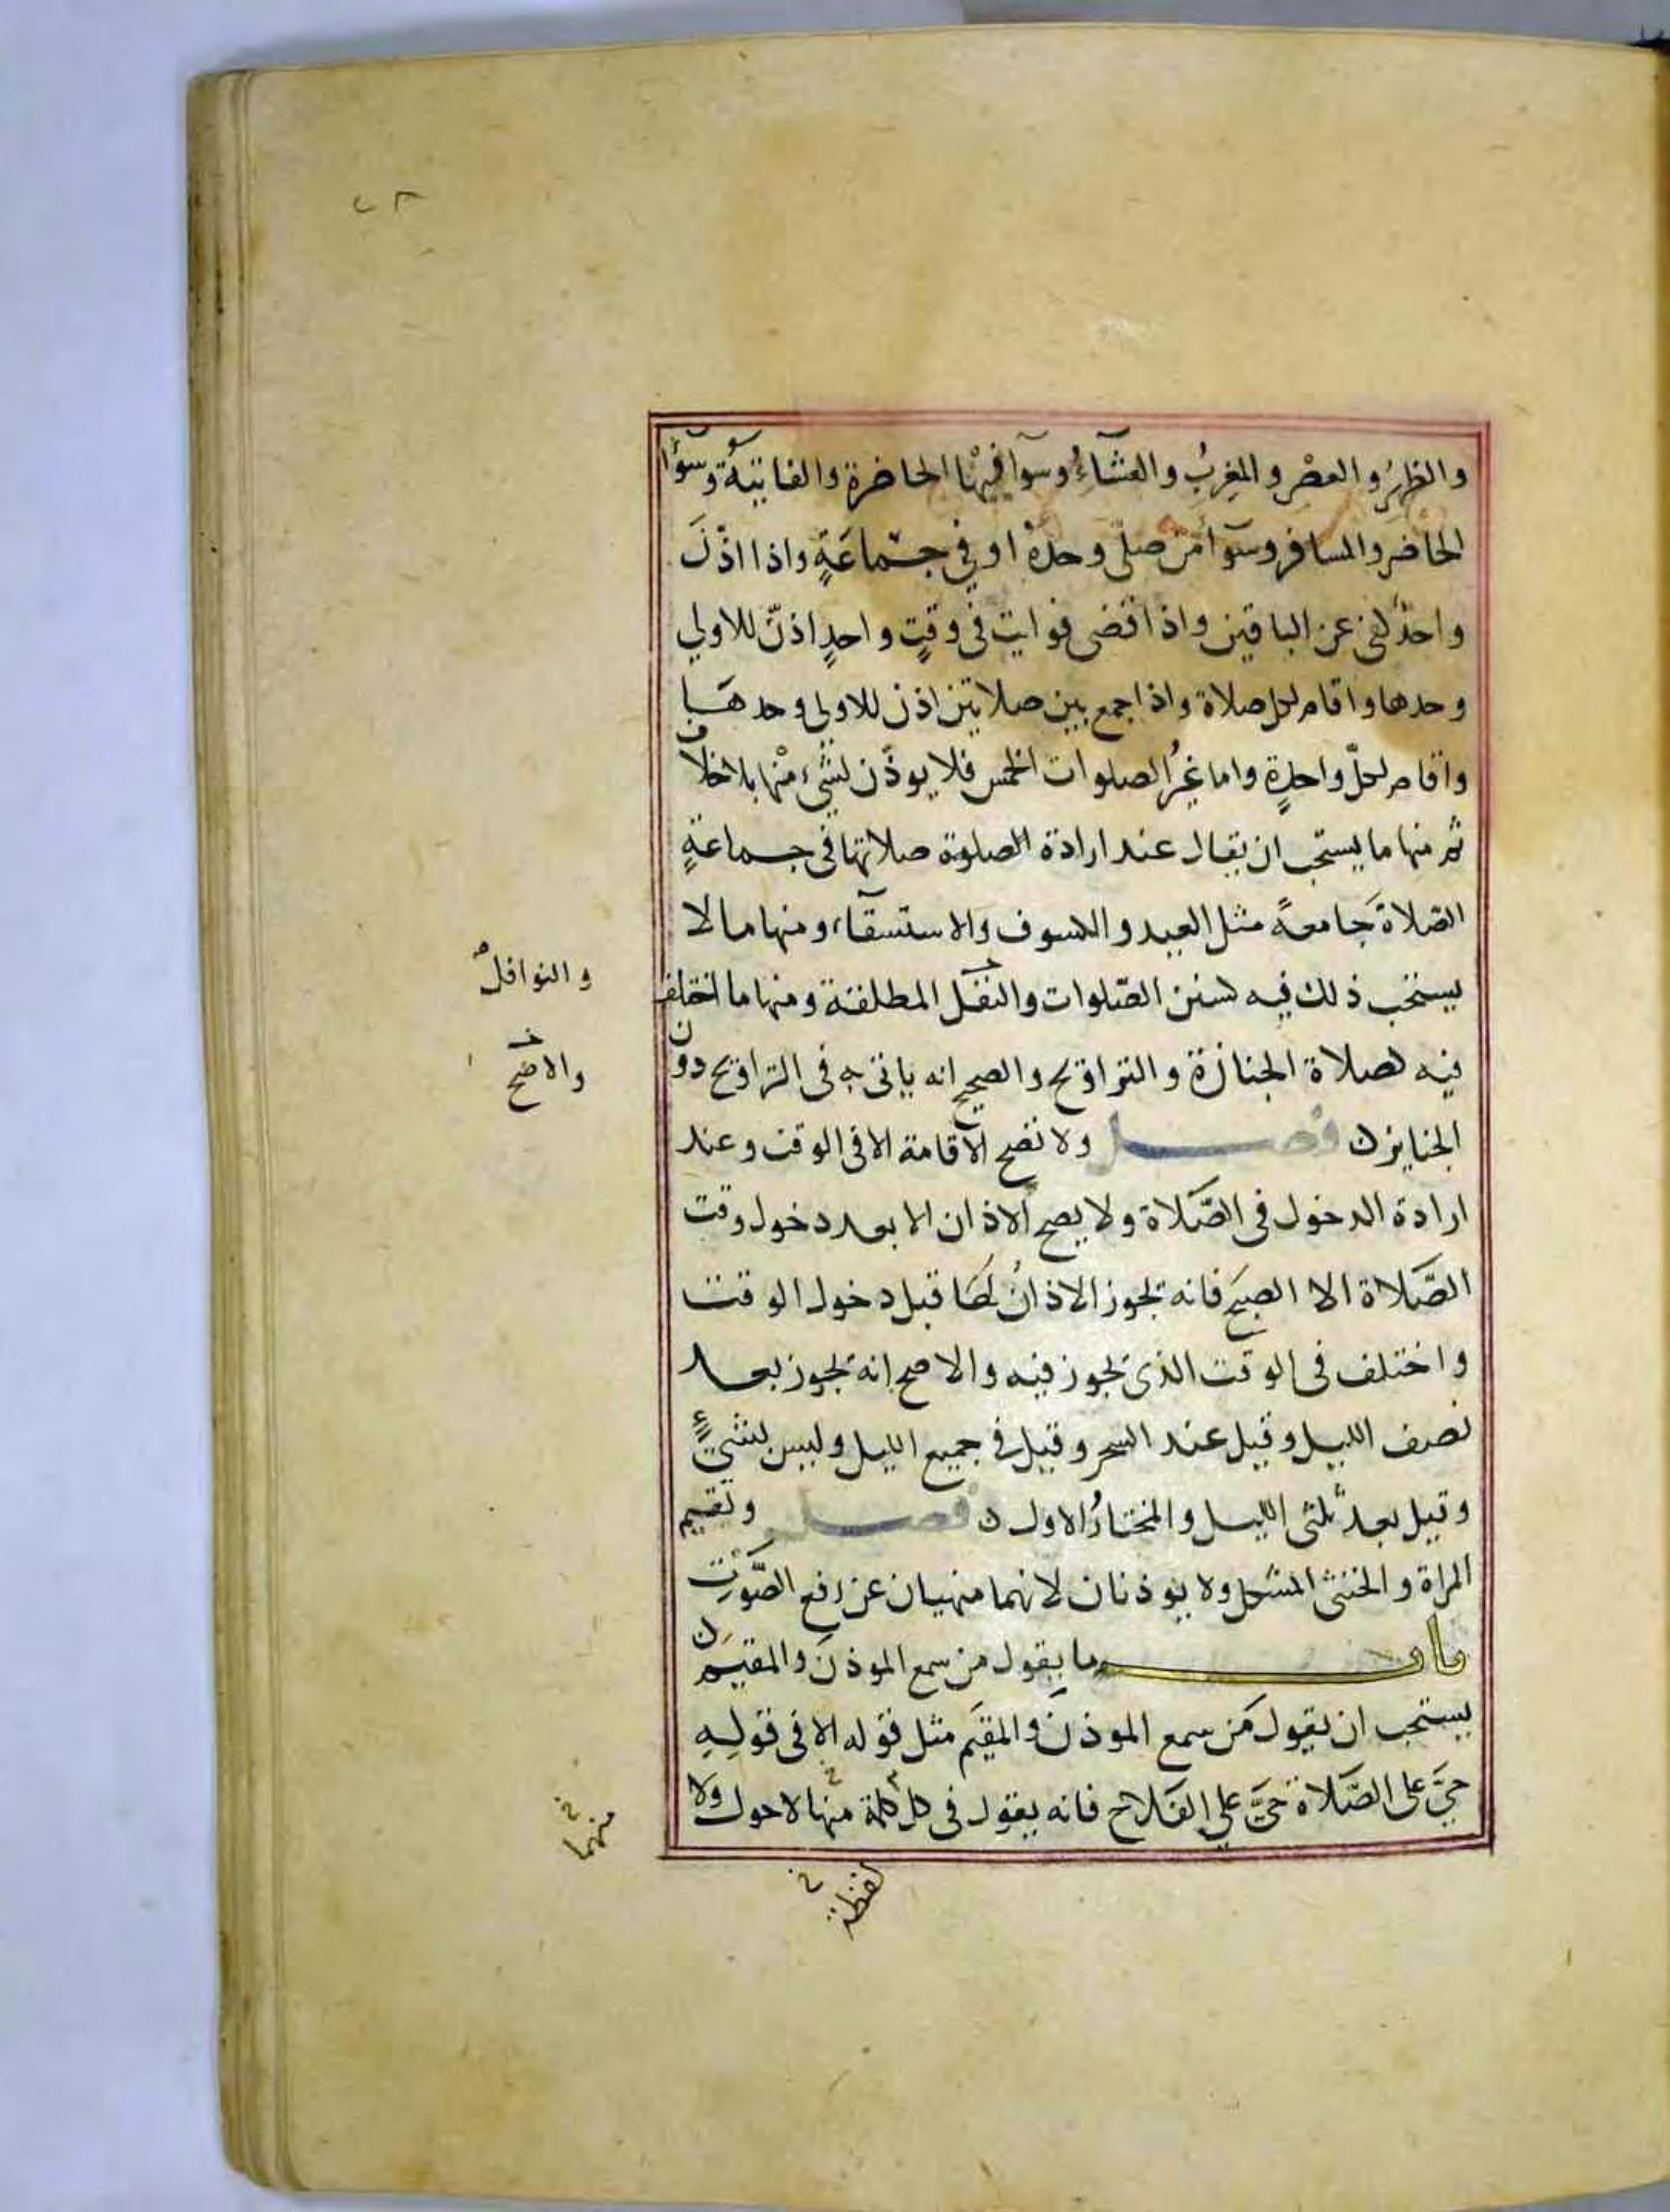 ٢٨
والظهرُ والعصْر والمغربُ والعشآءُ وسوآ فيها الحاضرة والفايتةُ وسوآءٌ
الحاضر والمسافر وسوآءٌ من صلّى وحدهُ او في جـمّاعَةٍ واذا اذّنَ
واحدٌ كفى عن الباقين واذا قضى فوايت في وقتٍ واحدٍ اذنّ للاولي
وحدها واقام لكل صلاة واذا جمع بين صلاتين اذن للاولي وحدهَا
واقام لكلّ واحدةٍ واما غيرُ الصلوات الخمس فلا يوذّن لشيء منْها بلا خلاف
ثم منها ما يستحب ان يقال عند ارادة الصلوة صلاتها في جماعةٍ
الصّلاةَ جَامعةً مثل العيد والكسوف والاستسقآء ومنها ما لا
يستحب ذلك فيه كسنن الصّلوات والنفل المطلقة ومنها ما اختلف
والنوافلُ
فيه كصلاة الجنازة والتراويح والصحيح انه ياتى به فى التراويح دون
والاصح
الجنايز ن فصل ولا تصح الاقامة الا فى الوقت وعند
ارادة الدخول فى الصَّلاة ولا يصح الاذان الا بعد دخول وقت
الصَّلاة الا الصبحَ فانه يجوز الاذانُ لَهَا قبل دخول الوقت
واختلف فى الوقت الذى يجوز فيه والاصح انه يجوز بعد
نصف الليل وقيل عند السحر وقيل في جميع الليل وليس بشيءٍ
وقيل بعد ثلثى الليل والمختارُ الاول ن فصل وتقيم
المراة والخنثى المشكل ولا يوذنان لانهما منهيان عن رفع الصَّوْت
باب ما يقول من سمع الموذنَ والمقيم ن
يستحب ان يقول مَن سمع الموذنَ والمقيم مثل قوله الا فى قولِهِ
حيَّ على الصَّلاة حيَّ علي الفَلاح فانه يقول فى كل كلمة منها لا حول ولا
منهما خ
لفظة خ